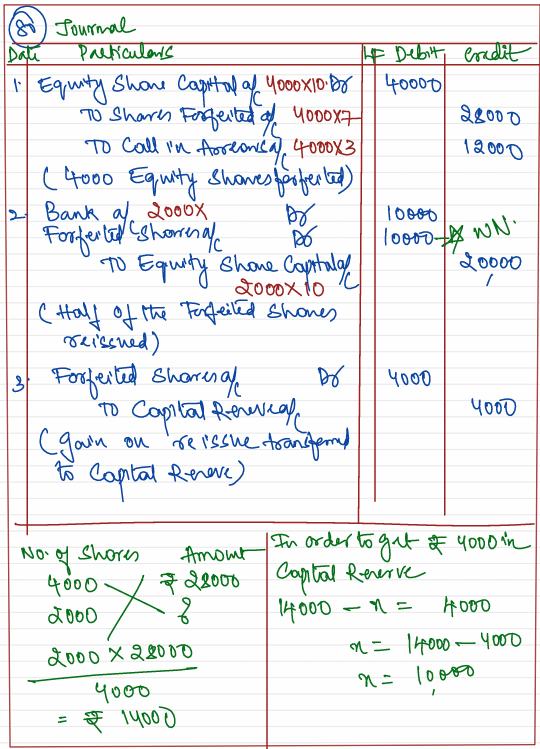 80 Journal
Date Particulars LF Debit Credit
1. Equity Share Capital a/c 4000x10. Dr 40000
To Shares Forfeited a/c 4000x7 28000
To Call in Arrears a/c 4000x3 12000
( 4000 Equity Shares forfeited)
2. Bank a/c 2000x Dr 10000
Forfeited Shares a/c Dr 10000 → WN.
To Equity Share Capital a/c 20000
2000x10
( Half of the Forfeited Shares
reissued)
3. Forfeited Shares a/c Dr 4000
To Capital Reserve a/c 4000
( gain on reissue transferred
to Capital Reserve)
No. of Shares Amount
4000 ₹ 28000
2000 ?
2000 x 28000
4000
= ₹ 14000
In order to get ₹ 4000 in
Capital Reserve
14000 - x = 4000
x = 14000 - 4000
x = 10,000